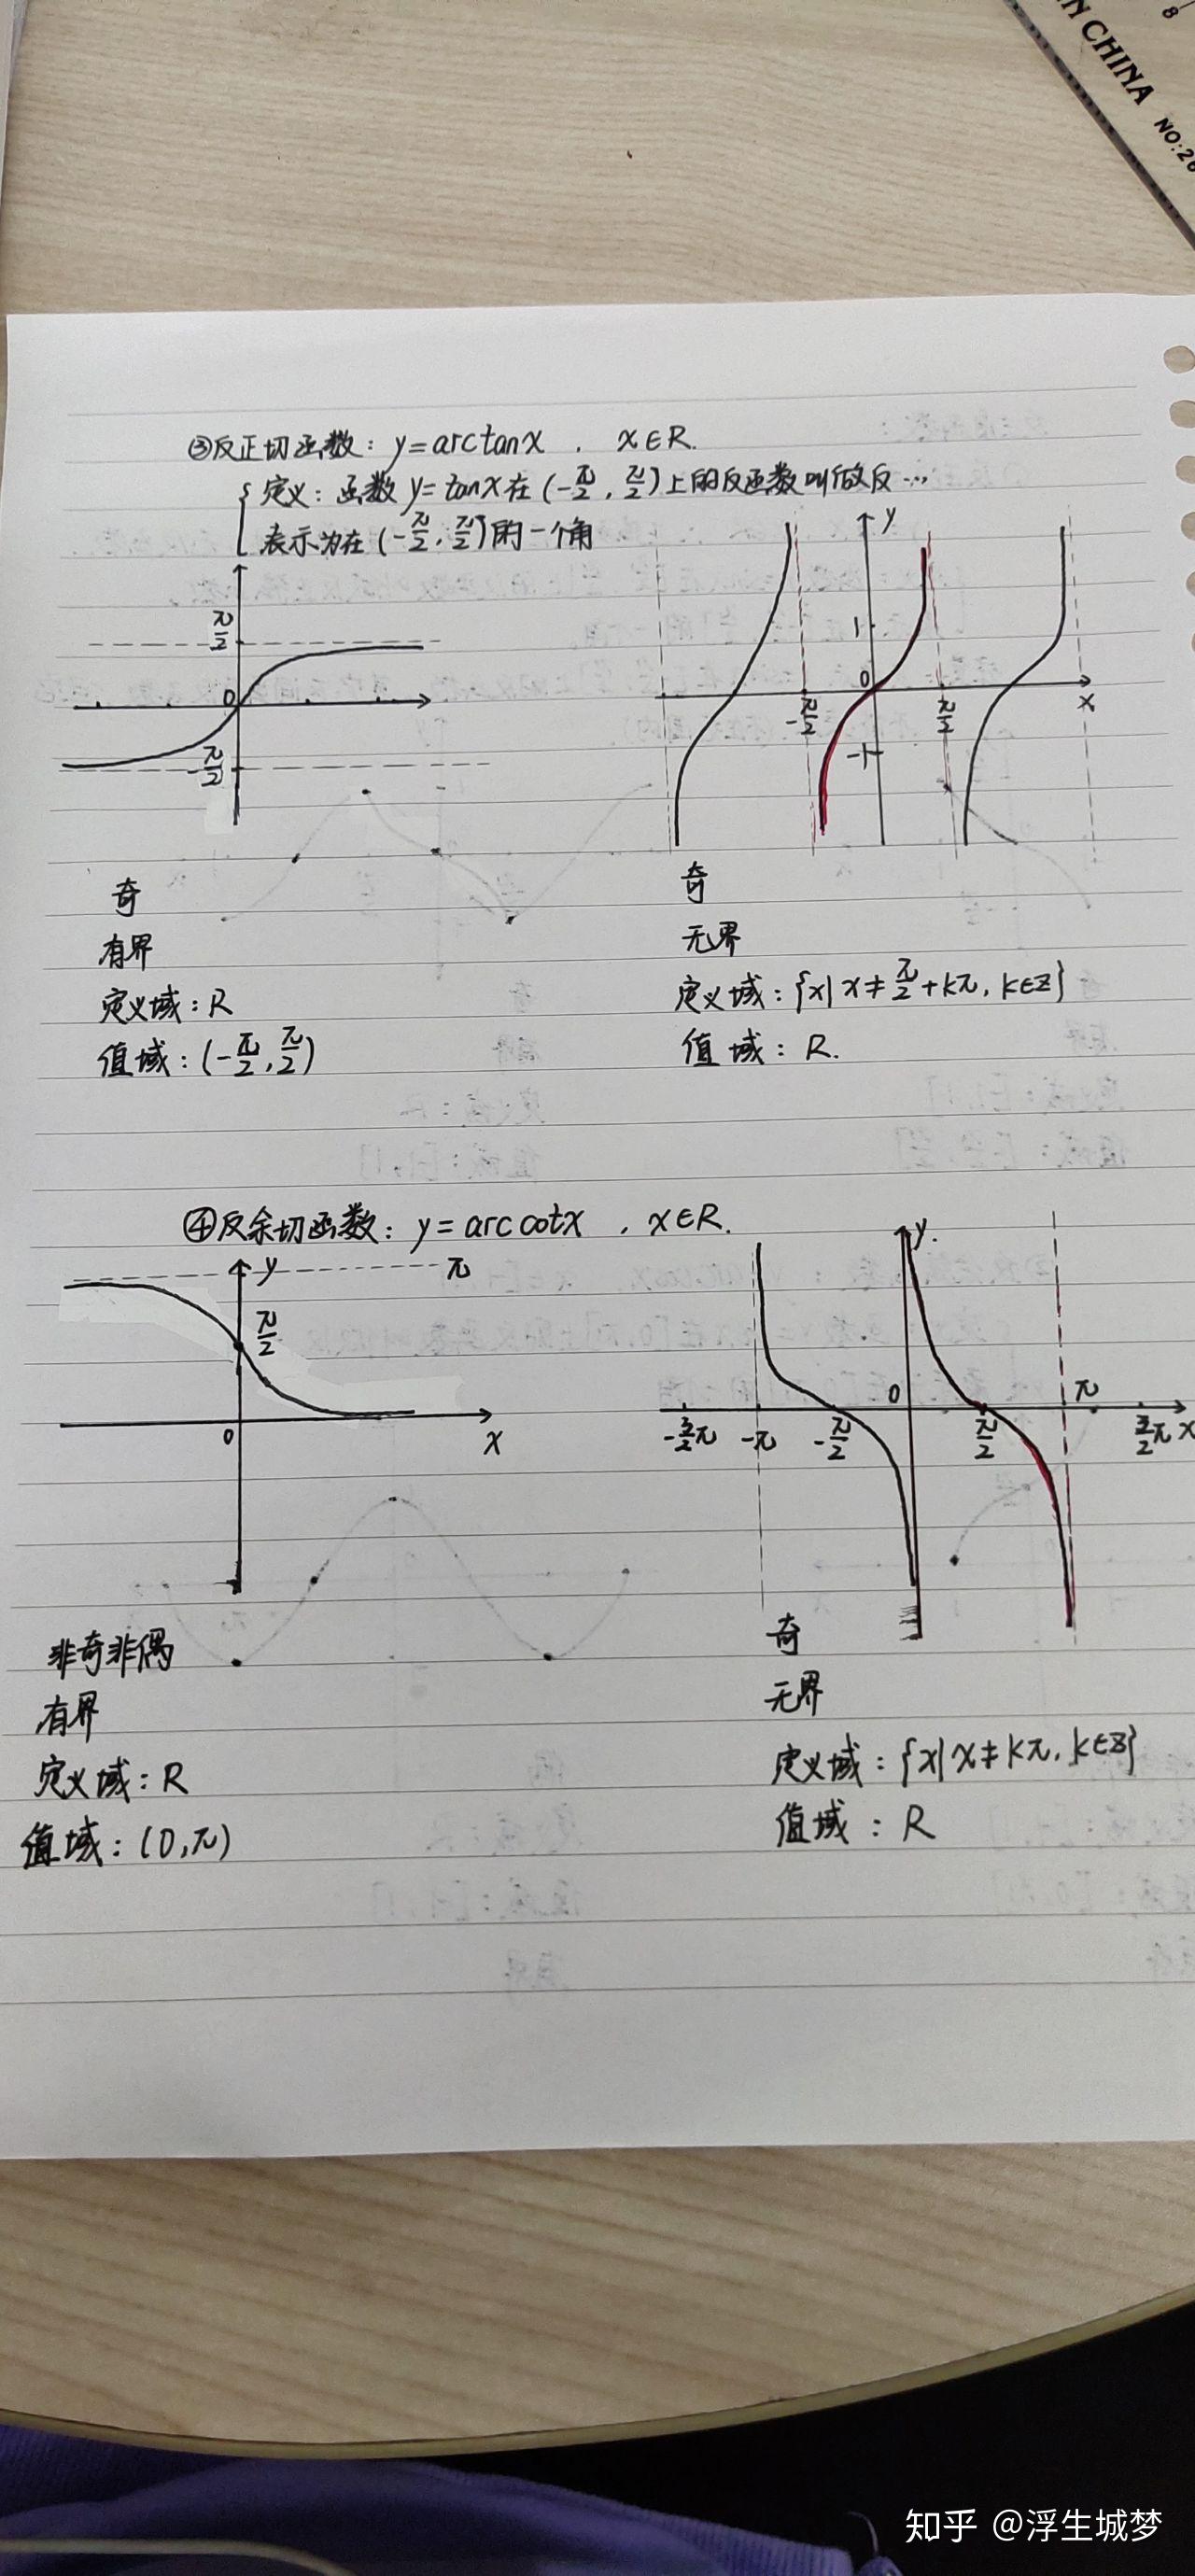 EN CHINA NO:20
8
③反正切函数: y=arctanx , x∈R.
定义: 函数 y=tanx在 (-π/2, π/2)上的反函数叫做反…
表示为在 (-π/2, π/2)的一个角
y
π/2
0
-π/2
1
0
x
-π/2
π/2
-1
奇
有界
定义域: R
值域: (-π/2, π/2)
奇
无界
定义域: {x| x≠π/2+kπ, k∈Z}
值域: R.
④反余切函数: y=arccotx , x∈R.
y
π
π/2
0
x
y.
0
π
-3/2π
-π
-π/2
π/2
3/2π
x
非奇非偶
有界
定义域: R
值域: (0,π)
奇
无界
定义域: {x| x≠kπ, k∈Z}
值域: R
知乎 @浮生城梦